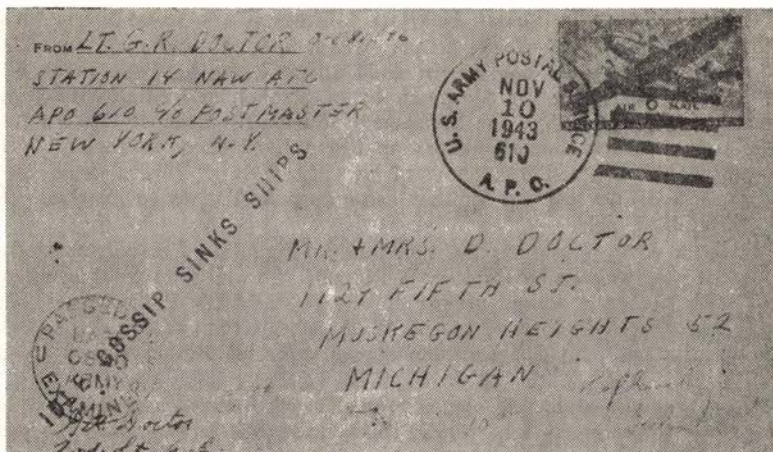 FROM LT. G. R. DOCTOR
STATION 14 NAW ATC
APO 610 c/o POSTMASTER
NEW YORK, N.Y.
U.S. ARMY POSTAL SERVICE
NOV
10
1943
610
A.P.O.
AIR MAIL
GOSSIP SINKS SHIPS
MR. + MRS. D. DOCTOR
FIFTH ST.
MUSKEGON HEIGHTS 52
MICHIGAN
PASSED
ARMY
EXAMINER
Doctor
2nd Lt.